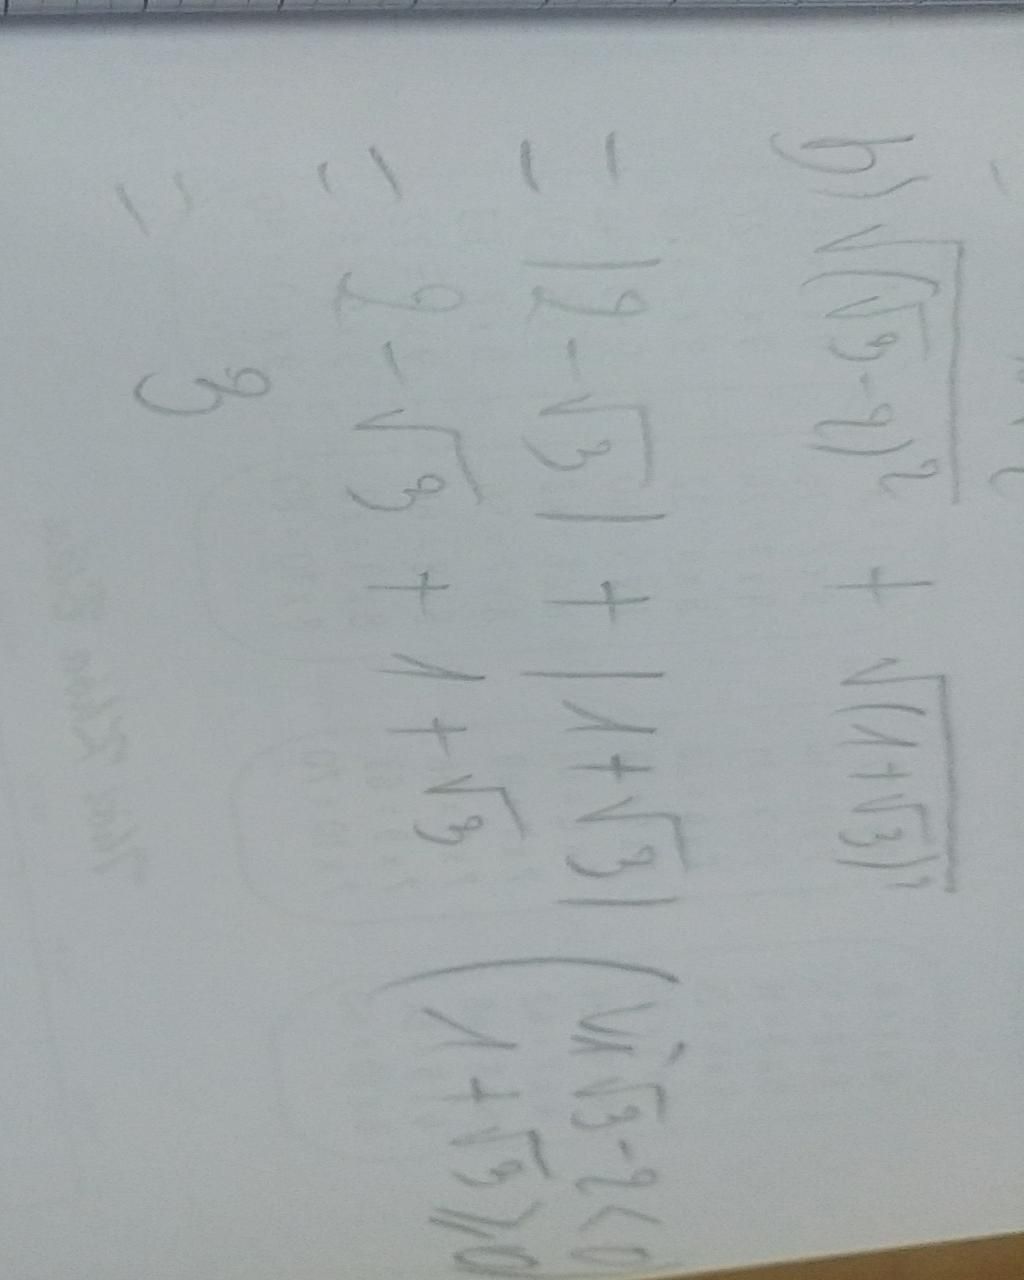 b) √((√3 - 2)²) + √((1+√3)²)
= |2 - √3| + |1+√3| (Vì √3 - 2 < 0
1+√3 ⩾ 0
= 2 - √3 + 1 + √3
= 3